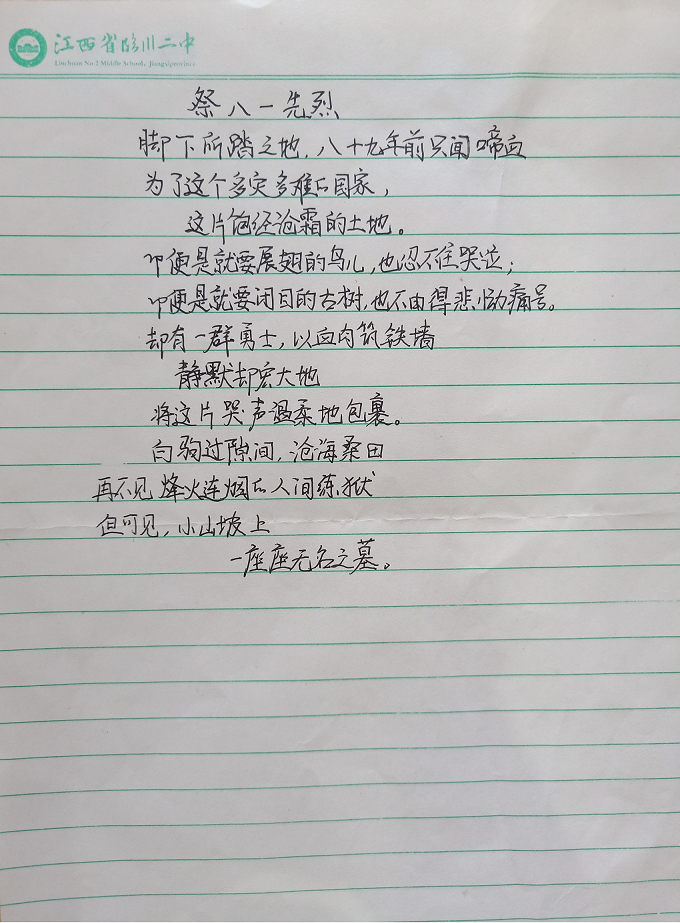 江西省临川二中
Linchuan No.2 Middle School, Jiangxi province
祭八一先烈
脚下所踏之地，八十九年前只闻啼血
为了这个多灾多难的国家，
这片饱经沧霜的土地。
即便是就要展翅的鸟儿，也忍不住哭泣；
即便是就要闭目的古树，也不由得悲恸痛号。
却有一群勇士，以血肉筑铁墙
静默却宏大地
将这片哭声温柔地包裹。
白驹过隙间，沧海桑田
再不见烽火连烟的人间练狱
但可见，小山坡上
一座座无名之墓。